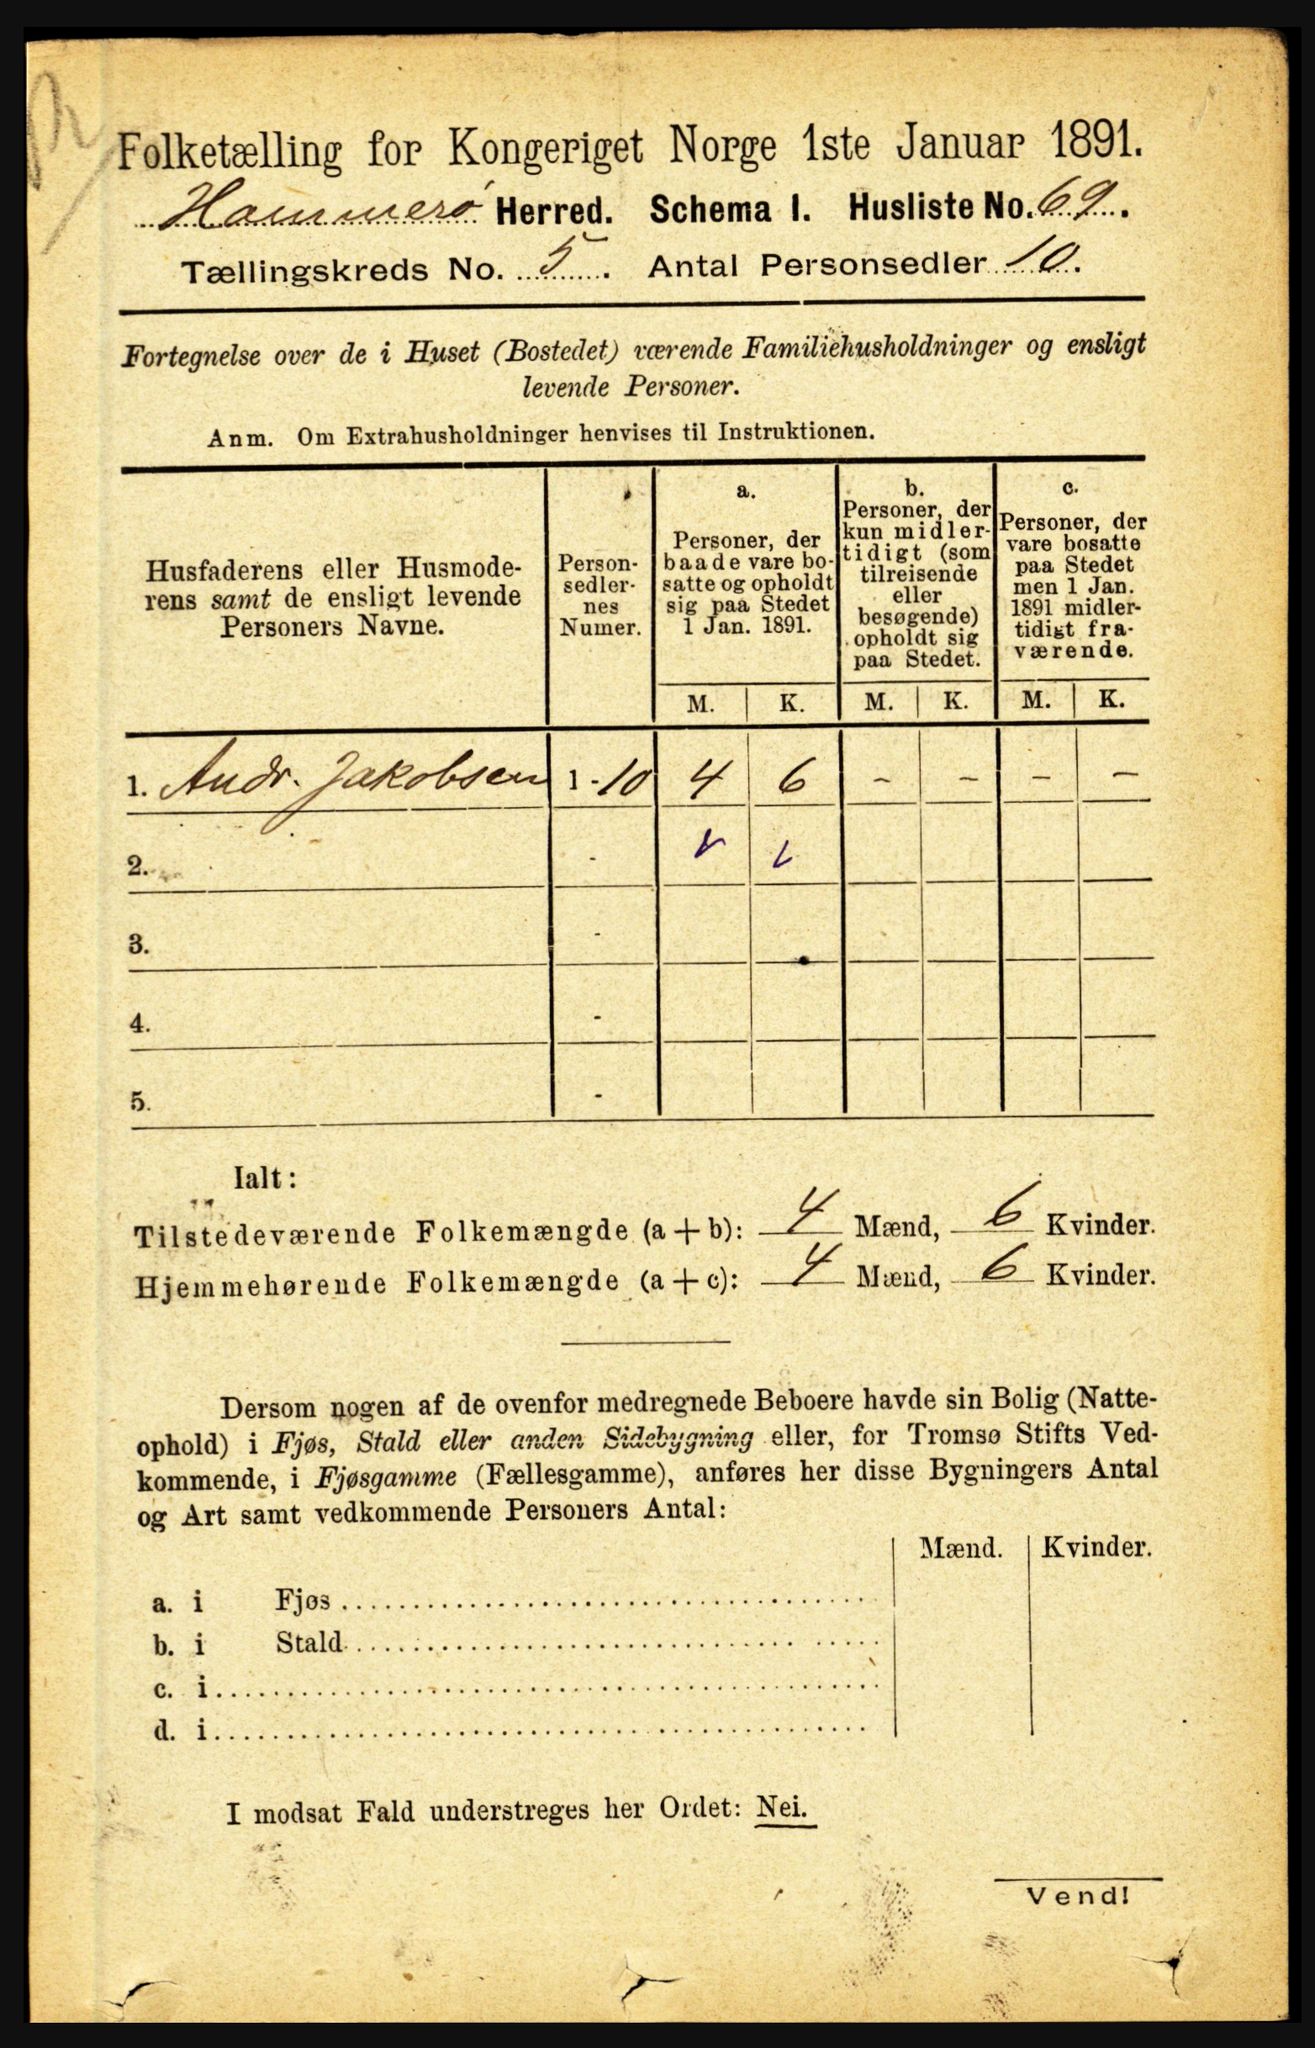 Folketælling for Kongeriget Norge 1ste Januar 1891.
Hammerø Herred. Schema I. Husliste No. 69.
Tællingskreds No. 5. Antal Personsedler 10.
Fortegnelse over de i Huset (Bostedet) værende Familiehusholdninger og ensligt
levende Personer.
Anm. Om Extrahusholdninger henvises til Instruktionen.
Husfaderens eller Husmode-
rens samt de ensligt levende
Personers Navne.
Person-
sedler-
nes
Numer.
a.
Personer, der
baade vare bo-
satte og opholdt
sig paa Stedet
1 Jan. 1891.
b.
Personer, der
kun midler-
tidigt (som
tilreisende
eller
besøgende)
opholdt sig
paa Stedet.
c.
Personer, der
vare bosatte
paa Stedet
men 1 Jan.
1891 midler-
tidigt fra-
værende.
M. K. M. K. M. K.
1. Andr. Jakobsen 1-10 4 6 - - - -
2. -
3. -
4. -
5. -
Ialt:
Tilstedeværende Folkemængde (a + b): 4 Mænd, 6 Kvinder.
Hjemmehørende Folkemængde (a + c): 4 Mænd, 6 Kvinder.
Dersom nogen af de ovenfor medregnede Beboere havde sin Bolig (Natte-
ophold) i Fjøs, Stald eller anden Sidebygning eller, for Tromsø Stifts Ved-
kommende, i Fjøsgamme (Fællesgamme), anføres her disse Bygningers Antal
og Art samt vedkommende Personers Antal:
Mænd. Kvinder.
a. i Fjøs
b. i Stald
c. i
d. i
I modsat Fald understreges her Ordet: Nei.
Vend!